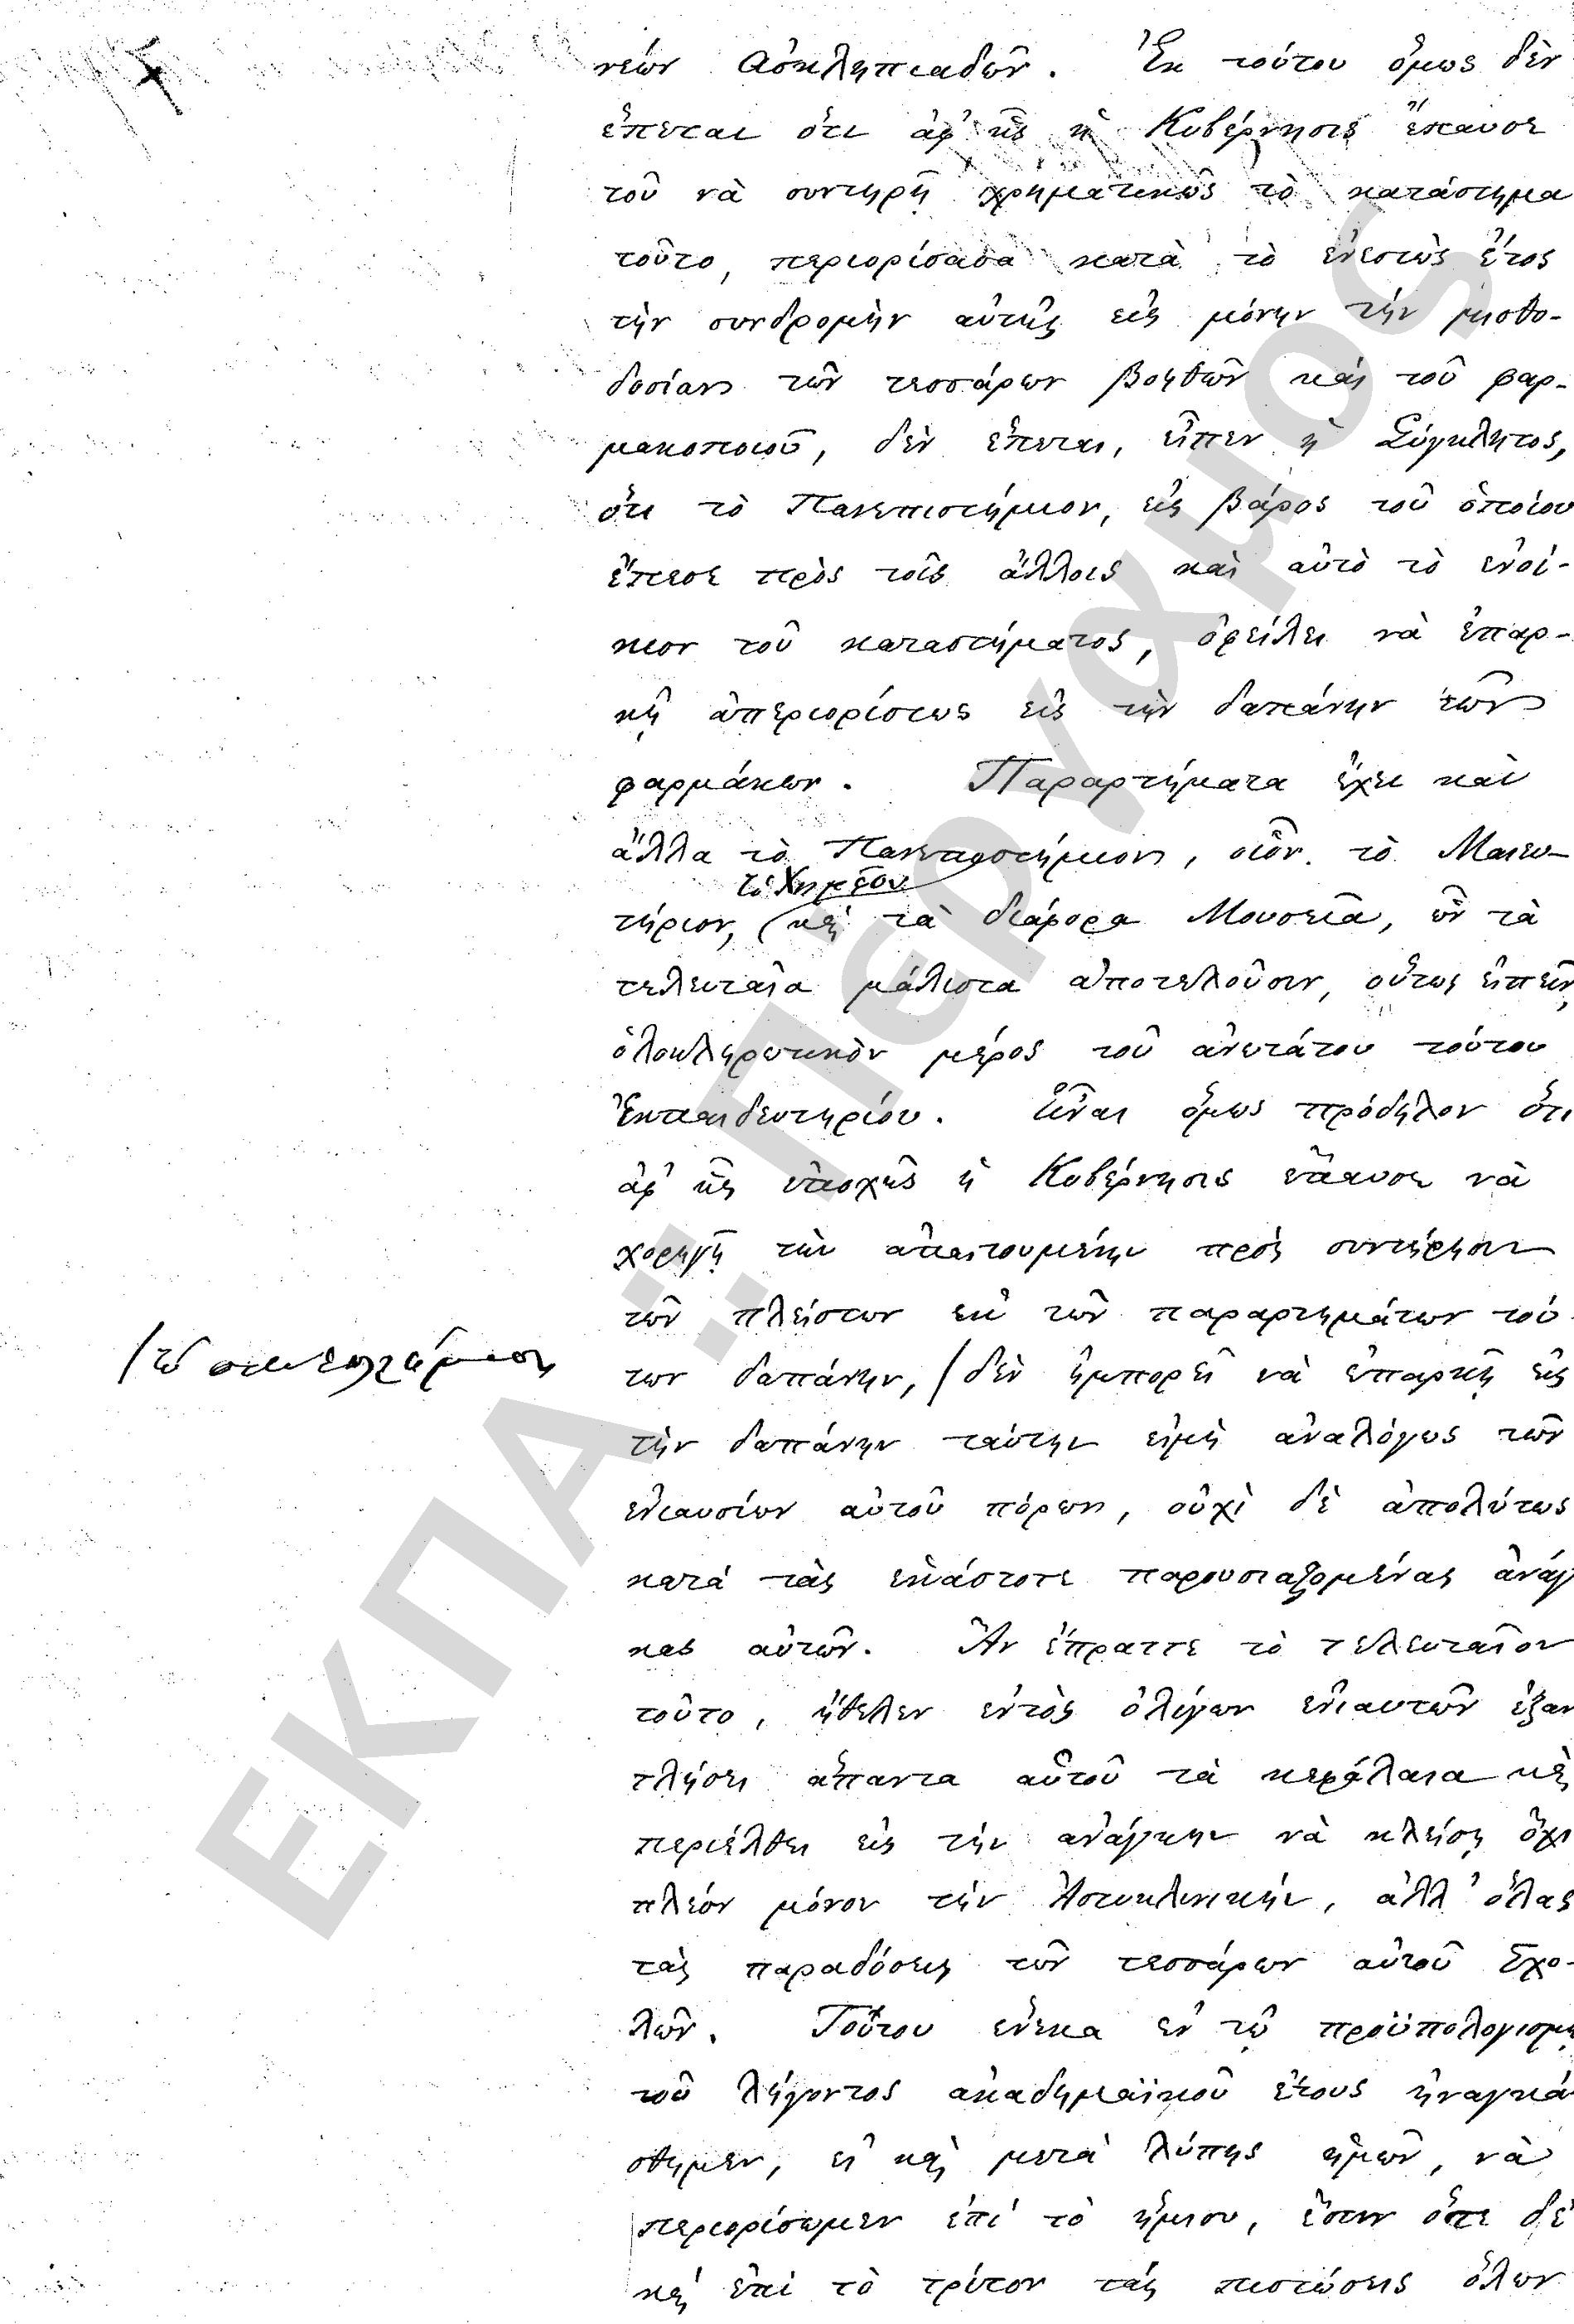 νέων Ἀσκληπιαδῶν. Ἐκ τούτου ὅμως δὲν
ἕπεται ὅτι ἀφ' ἧς ἡ Κυβέρνησις ἔπαυσε
τοῦ νὰ συντηρῇ χρηματικῶς τὸ κατάστημα
τοῦτο, περιορίσασα κατὰ τὸ ἐνεστὼς ἔτος
τὴν συνδρομὴν αὐτῆς εἰς μόνην τὴν μισθο-
δοσίαν τῶν τεσσάρων βοηθῶν καὶ τοῦ φαρ-
μακοποιοῦ, δὲν ἕπεται, εἶπεν ἡ Σύγκλητος,
ὅτι τὸ Πανεπιστήμιον, εἰς βάρος τοῦ ὁποίου
ἔπεσε πρὸς τοῖς ἄλλοις καὶ αὐτὸ τὸ ἐνοί-
κιον τοῦ καταστήματος, ὀφείλει νὰ ἐπαρ-
κῇ ἀπεριορίστως εἰς τὴν δαπάνην τῶν
φαρμάκων. Παραρτήματα ἔχει καὶ
ἄλλα τὸ Πανεπιστήμιον, οἷον τὸ Μαιευ-
τὸ Χημεῖον
τήριον, καὶ τὰ διάφορα Μουσεῖα, ὧν τὰ
τελευταῖα μάλιστα ἀποτελοῦσιν, οὕτως εἰπεῖν,
ὁλοκληρωτικὸν μέρος τοῦ ἀνωτάτου τούτου
Ἐκπαιδευτηρίου. Εἶναι ὅμως πρόδηλον ὅτι
ἀφ' ἧς ἐποχῆς ἡ Κυβέρνησις ἔπαυσε νὰ
χορηγῇ τὴν ἀπαιτουμένην πρὸς συντήρησιν
τῶν πλείστων ἐκ τῶν παραρτημάτων τού-
των δαπάνην, / δὲν ἠμπορεῖ νὰ ἐπαρκῇ εἰς
/ τὸ πανεπιστήμιον
τὴν δαπάνην ταύτην εἰμὴ ἀναλόγως τῶν
ἐνιαυσίων αὐτοῦ πόρων, οὐχὶ δὲ ἀπολύτως
κατὰ τὰς ἑκάστοτε παρουσιαζομένας ἀνάγ
κας αὐτῶν. Ἂν ἔπραττε τὸ τελευταῖον
τοῦτο, ἤθελεν ἐντὸς ὀλίγων ἐνιαυτῶν ἐξαν
τλήσει ἅπαντα αὑτοῦ τὰ κεφάλαια καὶ
περιέλθει εἰς τὴν ἀνάγκην νὰ κλείσῃ ὄχι
πλέον μόνον τὴν Ἀστυκλινικήν, ἀλλ' ὅλας
τὰς παραδόσεις τῶν τεσσάρων αὐτοῦ Σχο-
λῶν. Τούτου ἕνεκα ἐν τῷ προϋπολογισμῷ
τοῦ λήγοντος ἀκαδημαϊκοῦ ἔτους ἠναγκά
σθημεν, εἰ καὶ μετὰ λύπης ἡμῶν, νὰ
περιορίσωμεν ἐπὶ τὸ ἥμισυ, ἔστιν ὅτε δὲ
καὶ ἐπὶ τὸ τρίτον τὰς πιστώσεις ὅλων
ΕΚΠΑ : Πέργαμος